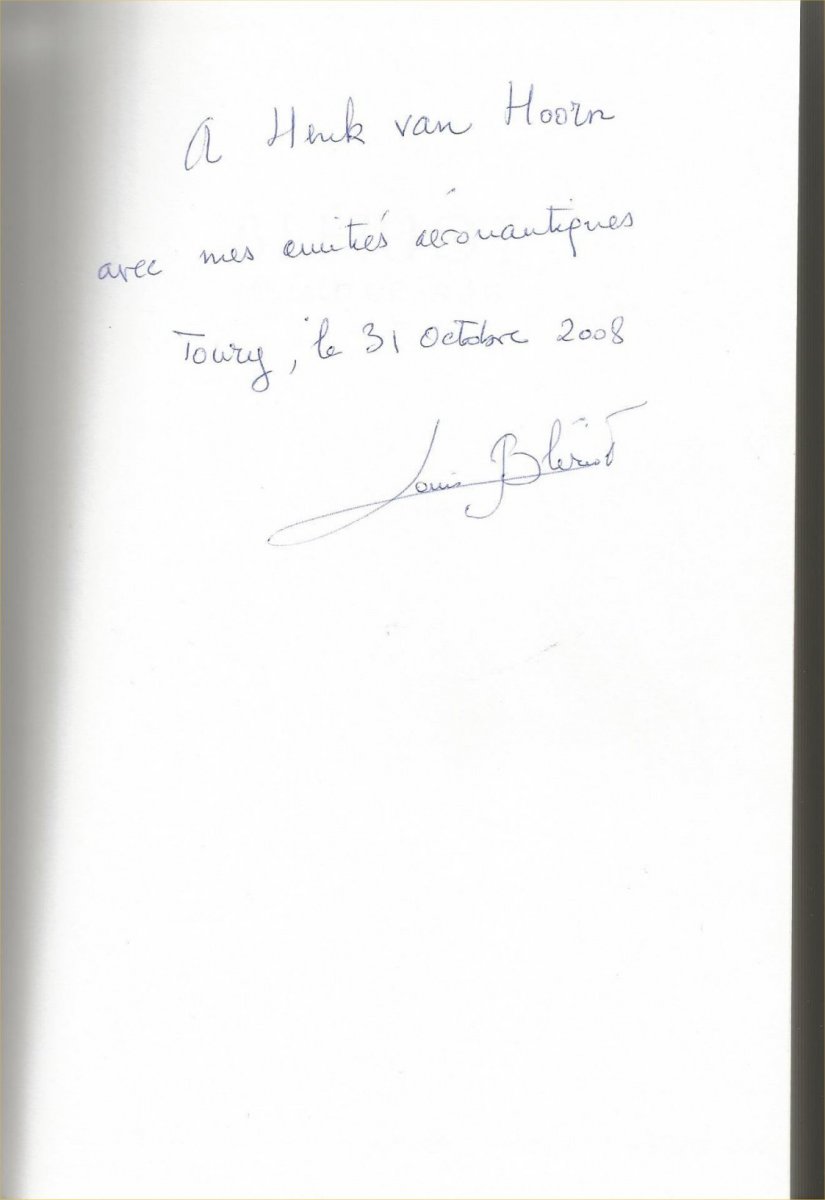 A Henk van Hoorn
avec mes amitiés aéronautiques
Toury, le 31 Octobre 2008
Louis Blériot